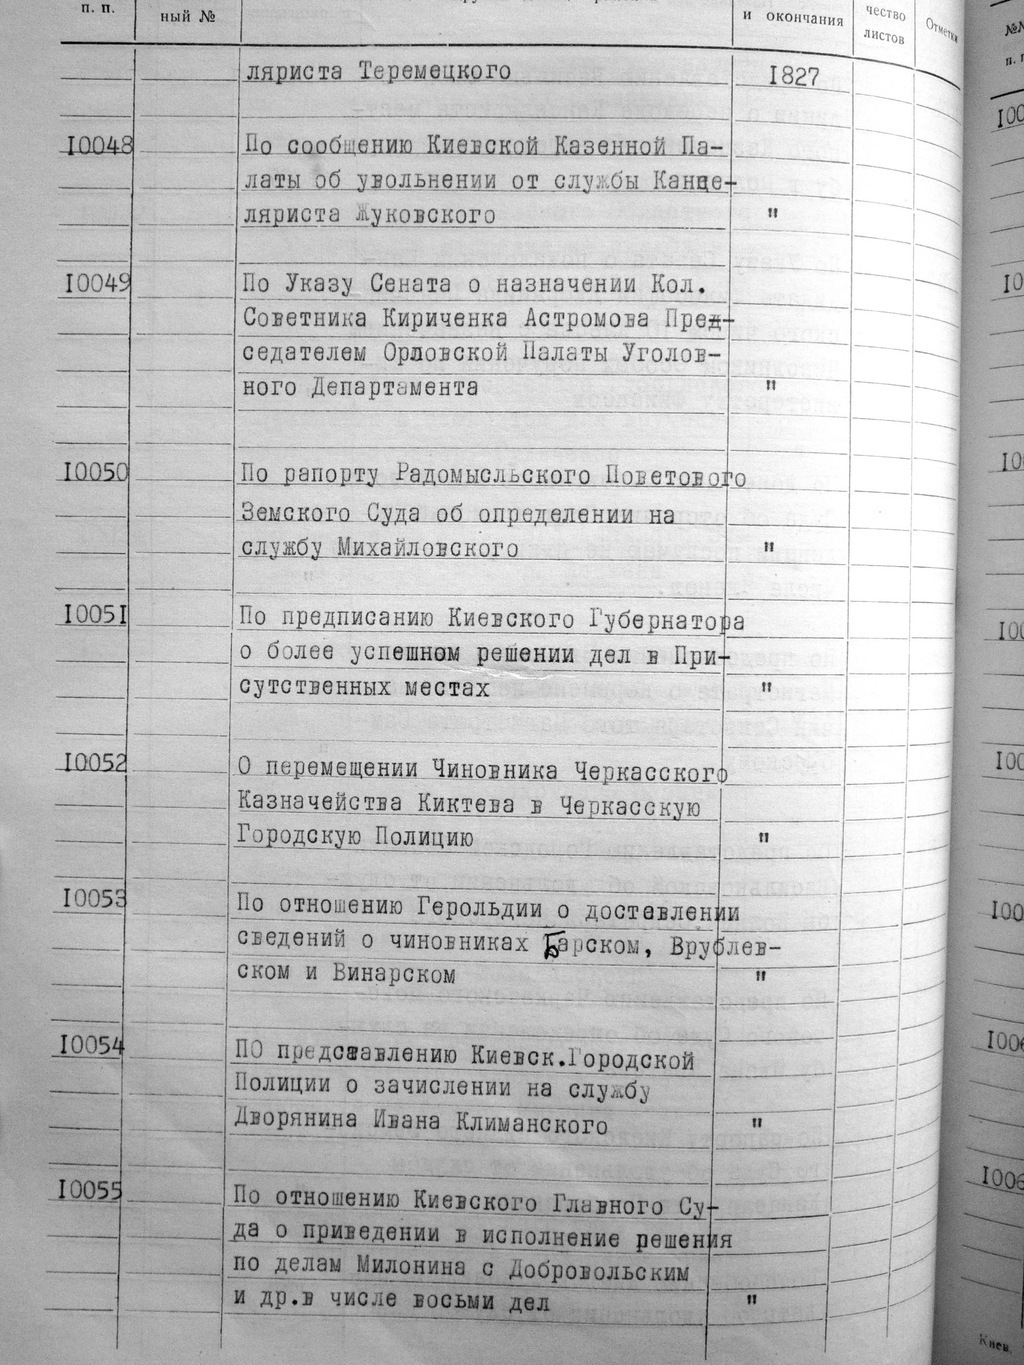 п. п.
ный №
и окончания
чество
листов
Отметки
ляриста Теремецкого 1827
10048 По сообщению Киевской Казенной Па-
латы об увольнении от службы Канце-
ляриста Жуковского "
10049 По Указу Сената о назначении Кол.
Советника Кириченка Астромова Пред-
седателем Орловской Палаты Уголов-
ного Департамента "
10050 По рапорту Радомысльского Поветового
Земского Суда об определении на
службу Михайловского "
10051 По предписанию Киевского Губернатора
о более успешном решении дел в При-
сутственных местах "
10052 О перемещении Чиновника Черкасского
Казначейства Киктева в Черкасскую
Городскую Полицию "
10053 По отношению Герольдии о доставлении
сведений о чиновниках Барском, Врублев-
ском и Винарском "
10054 ПО представлению Киевск.Городской
Полиции о зачислении на службу
Дворянина Ивана Климанского "
10055 По отношению Киевского Главного Су-
да о приведении в исполнение решения
по делам Милонина с Добровольским
и др.в числе восьми дел "
Киев.